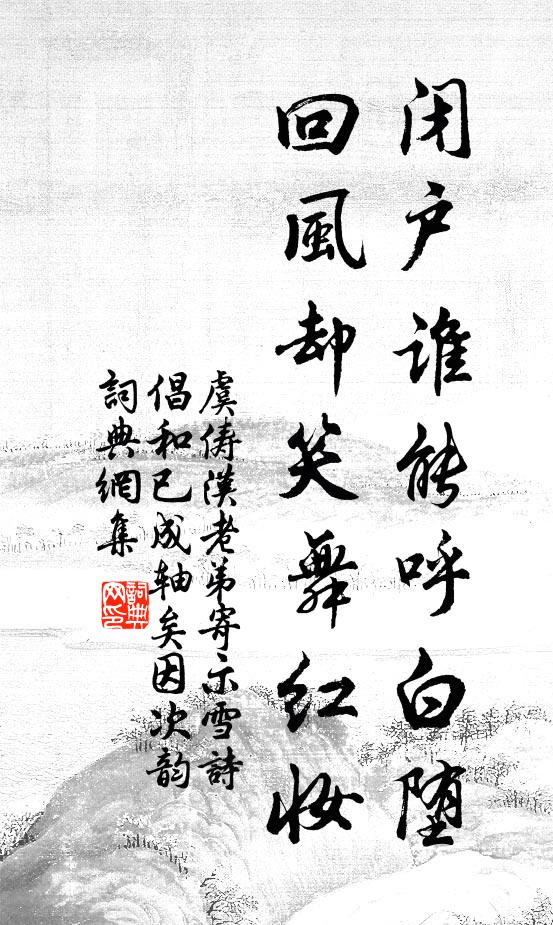 闭户谁能呼白堕
回風却笑舞红妝
虞俦漢老弟寄示雪詩
倡和已成轴矣因次韵
詞典網集
詞典
网印